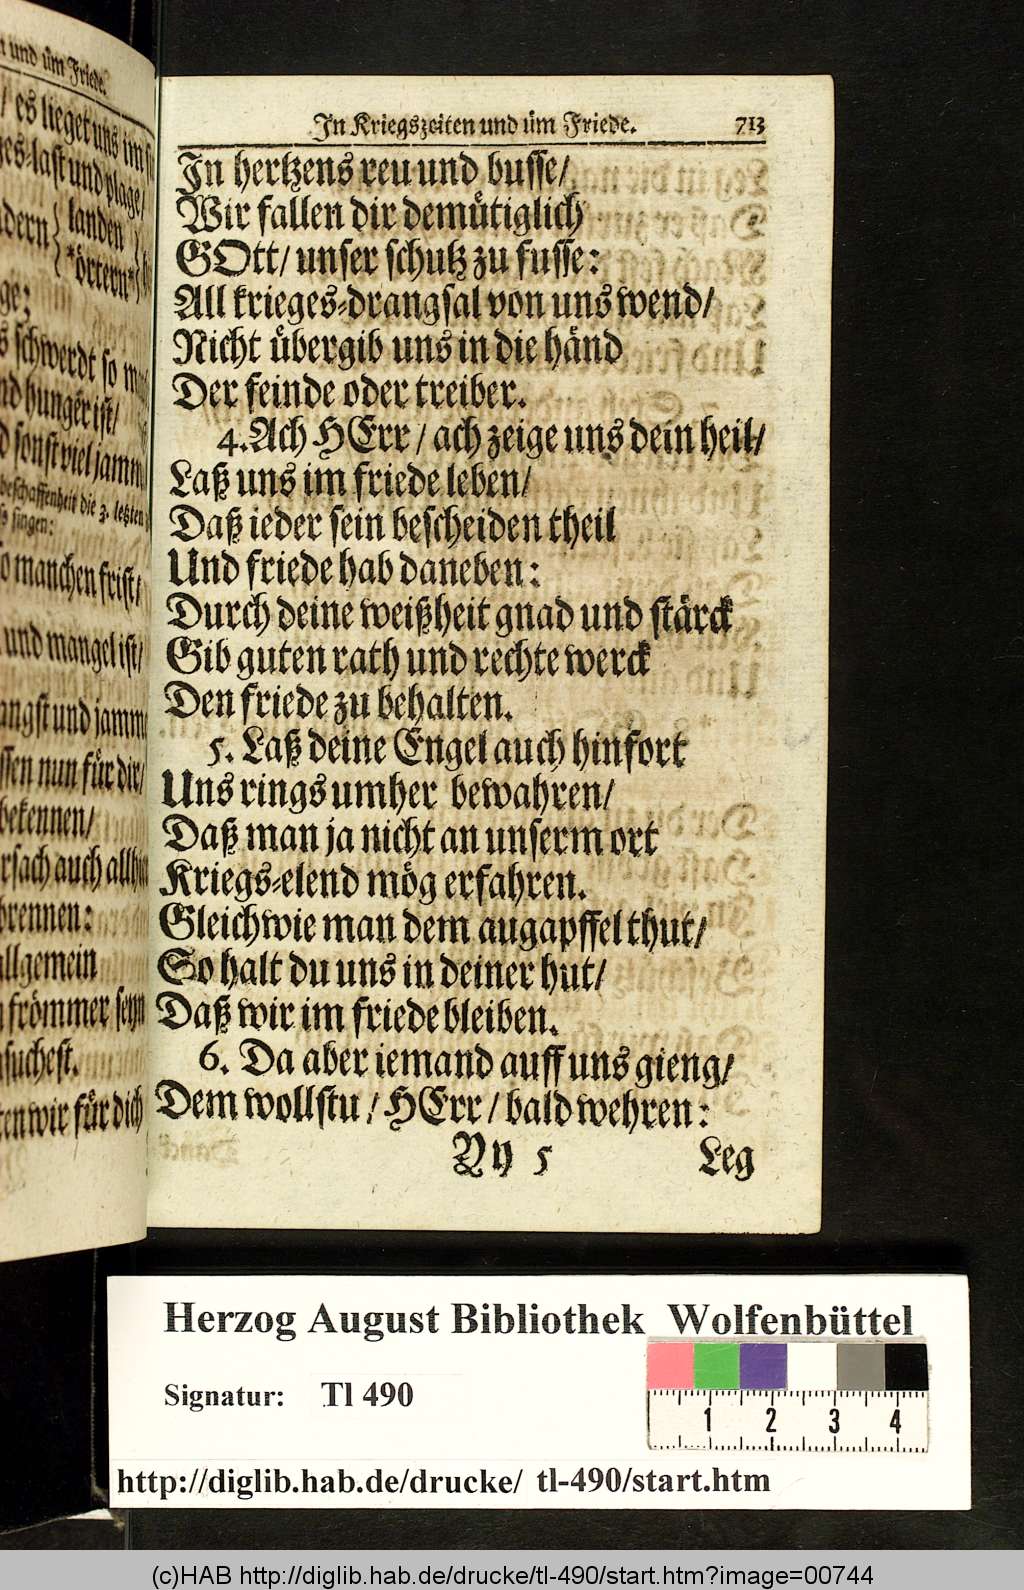 n und üm Friede.
/ es lieget uns im
ges-last und plage/
ndern { landen
* örtern*
ge:
s schwerdt so
nd hunger ist/
d sonst viel jamm
beschaffenheit die 3. letzten
singen:
so manchen frist/
und mangel ist/
angst und jamm
ssen nun für dir/
bekennen/
rsach auch allhi
brennen:
allgemein
frömmer seyn
suchest.
ten wir für dich
In Kriegszeiten und üm Friede. 713
In hertzens reu und busse/
Wir fallen dir demütiglich
GOtt/ unser schutz zu fusse:
All krieges-drangsal von uns wend/
Nicht übergib uns in die händ
Der feinde oder treiber.
4. Ach HErr/ ach zeige uns dein heil/
Laß uns im friede leben/
Daß ieder sein bescheiden theil
Und friede hab daneben:
Durch deine weißheit gnad und stärck
Gib guten rath und rechte werck
Den friede zu behalten.
5. Laß deine Engel auch hinfort
Uns rings umher bewahren/
Daß man ja nicht an unserm ort
Kriegs-elend mög erfahren.
Gleichwie man dem augapffel thut/
So halt du uns in deiner hut/
Daß wir im friede bleiben.
6. Da aber iemand auff uns gieng/
Dem wollstu/ HErr/ bald wehren:
Yy 5 Leg
Herzog August Bibliothek Wolfenbüttel
Signatur: Tl 490
1 2 3 4
http://diglib.hab.de/drucke/ tl-490/start.htm
(c)HAB http://diglib.hab.de/drucke/tl-490/start.htm?image=00744